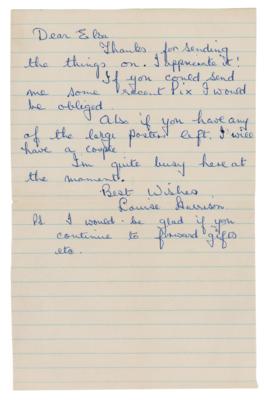 Dear Elsa
Thanks for sending
the things on. I appreciate it!
If you could send
me some recent Pix I would
be obliged.
Also if you have any
of the large posters left, I will
have a couple
I'm quite busy here at
the moment.
Best Wishes,
Louise Harrison.
Ps I would be glad if you
continue to forward gifts
etc.